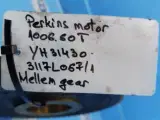 Perkins motor
1006.60T
YH31430.
3117L067/1
Mellem gear